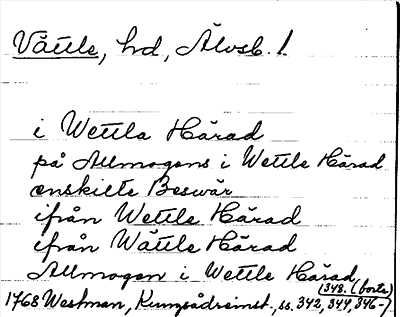 Vättle, hd, Älvsb. l.
i Wettla Härad
på Allmogens i Wettle Härad
enskilte Beswär
ifrån Wettle Härad
ifrån Wättle Härad
Allmogen i Wettle Härad
(348. (borta)
1768 Westman, Kungsådreinst., ss. 342, 344, 346-)